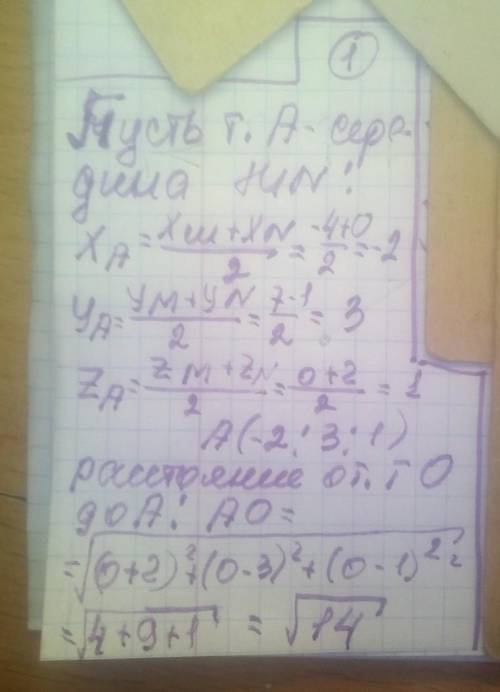 1
Пусть т. А - сере-
дина МN:
X_A = (X_M + X_N)/2 = (-4+0)/2 = -2
У_A = (У_M + У_N)/2 = (7-1)/2 = 3
Z_A = (Z_M + Z_N)/2 = (0+2)/2 = 1
А(-2; 3; 1)
расстояние от. т О
до А: АО =
= √((0+2)² + (0-3)² + (0-1)²) =
= √(4+9+1) = √14